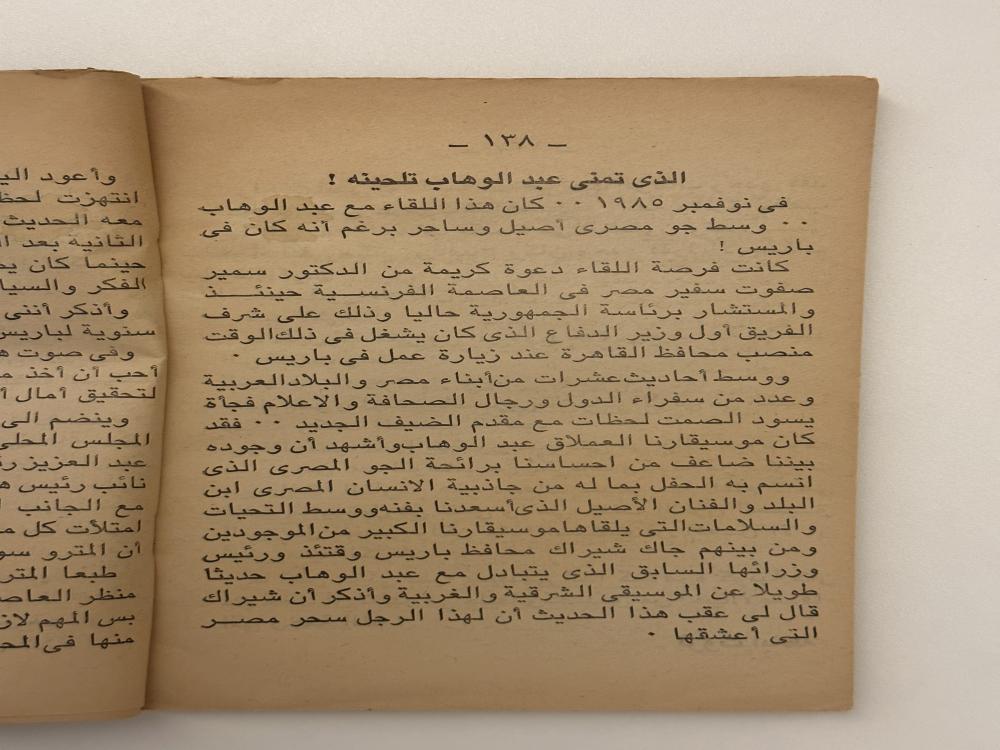 — ١٣٨ —
الذى تمنى عبد الوهاب تلحينه !
فى نوفمبر ١٩٨٥ ٠٠ كان هذا اللقاء مع عبد الوهاب
٠٠ وسط جو مصرى أصيل وساحر برغم أنه كان فى
باريس !
كانت فرصة اللقاء دعوة كريمة من الدكتور سمير
صفوت سفير مصر فى العاصمة الفرنسية حينئذ
والمستشار برئاسة الجمهورية حاليا وذلك على شرف
الفريق أول وزير الدفاع الذى كان يشغل فى ذلك الوقت
منصب محافظ القاهرة عند زيارة عمل فى باريس ٠
ووسط أحاديث عشرات من أبناء مصر والبلاد العربية
وعدد من سفراء الدول ورجال الصحافة والاعلام فجأة
يسود الصمت لحظات مع مقدم الضيف الجديد ٠٠ فقد
كان موسيقارنا العملاق عبد الوهاب وأشهد أن وجوده
بيننا ضاعف من احساسنا برائحة الجو المصرى الذى
اتسم به الحفل بما له من جاذبية الانسان المصرى ابن
البلد والفنان الأصيل الذى أسعدنا بفنه ووسط التحيات
والسلامات التى يلقاها موسيقارنا الكبير من الموجودين
ومن بينهم جاك شيراك محافظ باريس وقتئذ ورئيس
وزرائها السابق الذى يتبادل مع عبد الوهاب حديثا
طويلا عن الموسيقى الشرقية والغربية وأذكر أن شيراك
قال لى عقب هذا الحديث أن لهذا الرجل سحر مصر
التى أعشقها ٠
وأعود
انتهزت
معه الحديث
الثانية بعد
حينما كان
الفكر
وأذكر أننى
سنوية لباريس
وفى صوت
أحب أن أخذ
لتحقيق أمال
وينضم الى
المجلس المحلى
عبد العزيز
نائب رئيس
مع الجانب
امتلأت كل
أن المترو
طبعا
منظر
بس المهم
منها فى